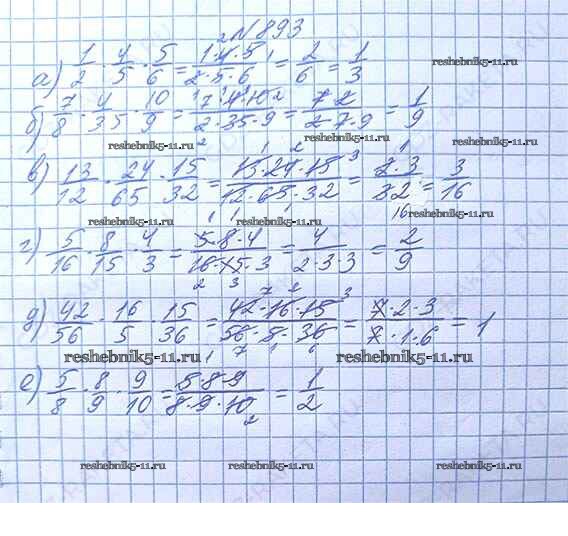 №893
а) 1/2 · 4/5 · 5/6 = 1·4·5/2·5·6 = 2/6 = 1/3
б) 7/8 · 4/35 · 10/9 = 7·4·10/2·35·9 = 7·2/2·7·9 = 1/9
reshebnik5-11.ru reshebnik5-11.ru
в) 13/12 · 24/65 · 15/32 = 13·24·15/12·65·32 = 2·3/32 = 3/16
reshebnik5-11.ru reshebnik5-11.ru
г) 5/16 · 8/15 · 4/3 = 5·8·4/16·15·3 = 4/2·3·3 = 2/9
д) 42/56 · 16/5 · 15/36 = 42·16·15/56·5·36 = 7·2·3/7·1·6 = 1
reshebnik5-11.ru reshebnik5-11.ru
е) 5/8 · 8/9 · 9/10 = 5·8·9/8·9·10 = 1/2
reshebnik5-11.ru reshebnik5-11.ru